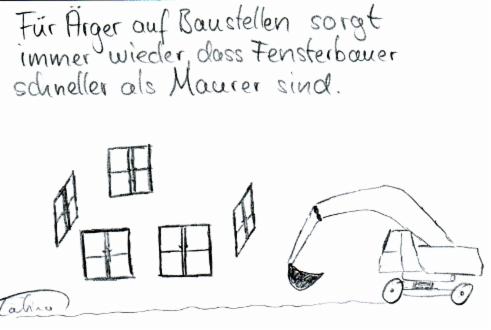 Für Ärger auf Baustellen sorgt
immer wieder, dass Fensterbauer
schneller als Maurer sind.